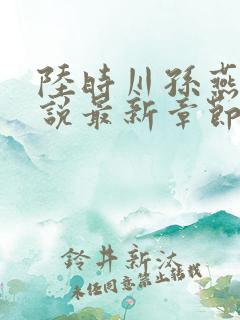 陸時川孫燕
說最新章節
鈴井新汰
未經同意禁止轉載